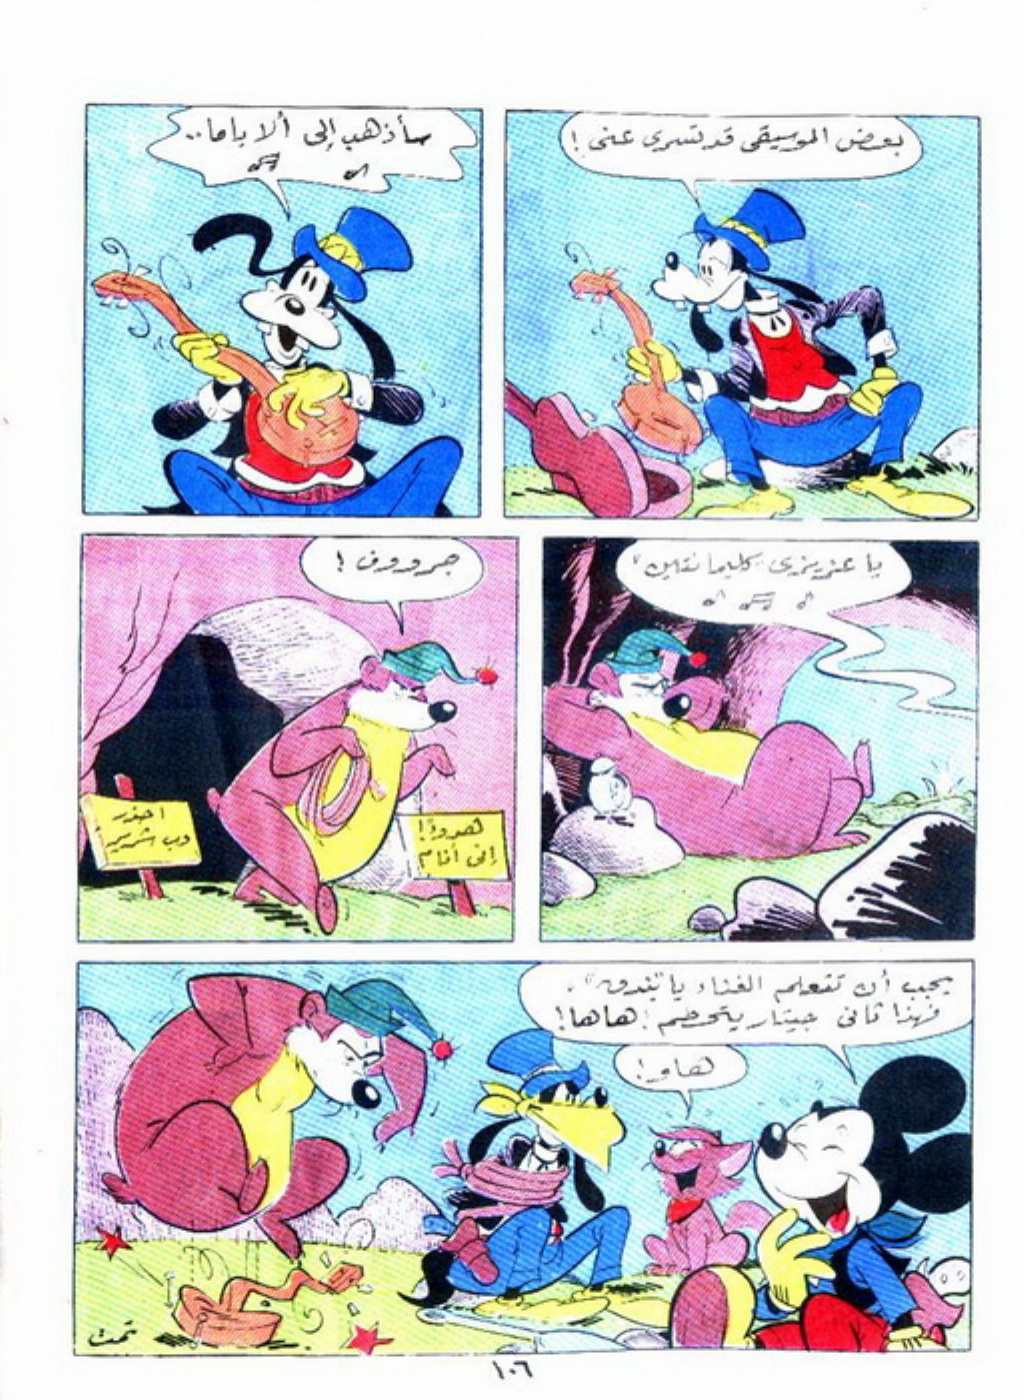 بعض الموسيقى قد تسرى عنى !
سأذهب إلى ألاباما..
يا عزيزتى "كليمانتين"
جرووف !
احذر
دب شرير
هدوءًا!
إنى أنام
يجب أن تتعلم الغناء يا "بندق"،
فهذا ثانى جيتار يتحطم ! هاها!
هاو!
تمت
١٠٦